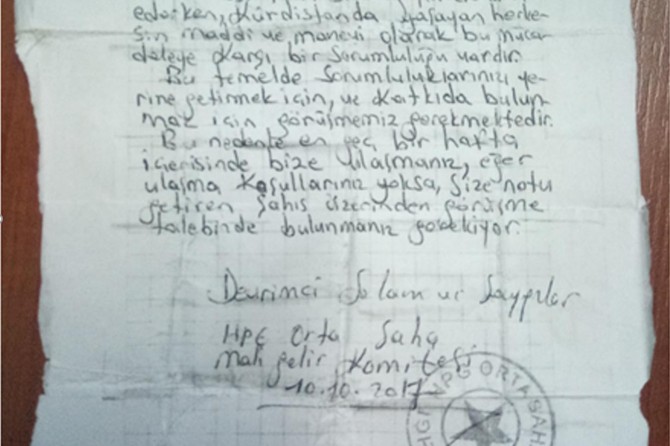 ederken, Kürdistanda yaşayan herke-
sin maddi ve manevi olarak bu müca-
deleye karşı bir sorumluluğu vardır.
Bu temelde sorumluluklarınızı ye-
rine getirmek için, ve katkıda bulun
mak için görüşmemiz gerekmektedir.
Bu nedenle en geç bir hafta
içerisinde bize ulaşmanız, eğer
ulaşma koşullarınız yoksa, size notu
getiren şahıs üzerinden görüşme
talebinde bulunmanız gerekiyor.
Devrimci Selam ve Saygılar
HPG Orta Saha
Mali gelir Komitesi
10.10.2017
HPG ORTA SAHA